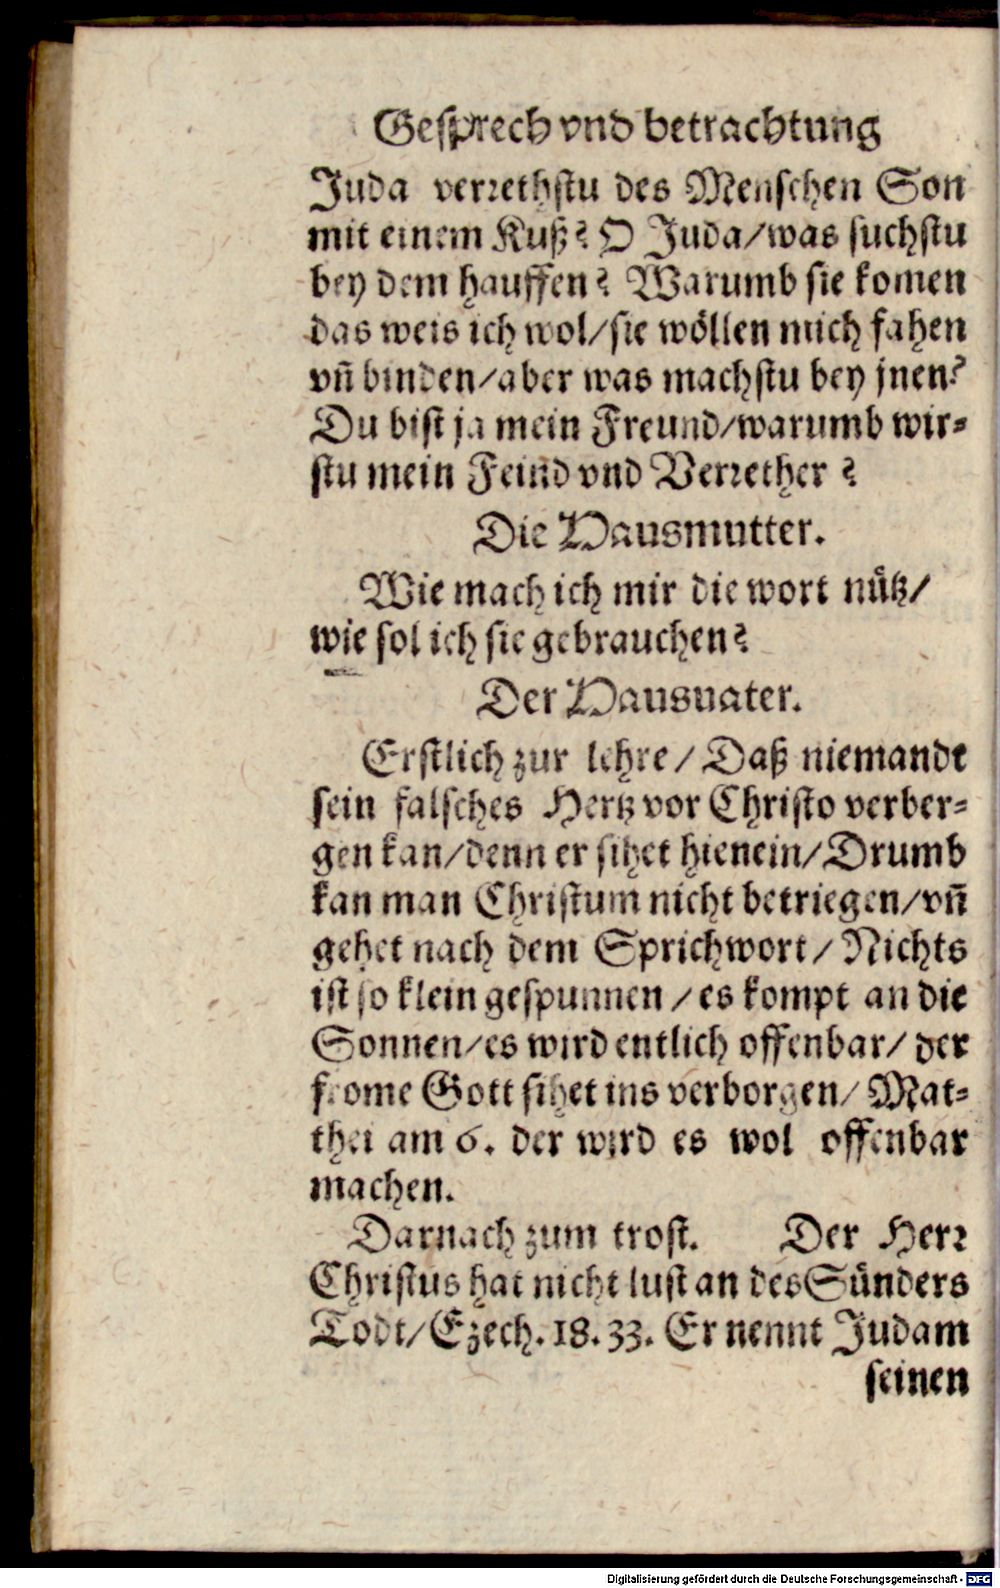 Gesprech vnd betrachtung
Juda verrethstu des Menschen Son
mit einem Kuß? O Juda/was suchstu
bey dem hauffen? Warumb sie komen
das weis ich wol/sie wöllen mich fahen
vn̄ binden/aber was machstu bey jnen?
Du bist ja mein Freund/warumb wir-
stu mein Feind vnd Verrether?
Die Hausmutter.
Wie mach ich mir die wort nütz/
wie sol ich sie gebrauchen?
Der Hausuater.
Erstlich zur lehre/ Daß niemandt
sein falsches Hertz vor Christo verber-
gen kan/denn er sihet hienein/Drumb
kan man Christum nicht betriegen/vn̄
gehet nach dem Sprichwort/ Nichts
ist so klein gespunnen/es kompt an die
Sonnen/es wird entlich offenbar/ der
frome Gott sihet ins verborgen/ Mat-
thei am 6. der wird es wol offenbar
machen.
Darnach zum trost. Der Herr
Christus hat nicht lust an des Sünders
Todt/Ezech. 18. 33. Er nennt Judam
seinen
Digitalisierung gefördert durch die Deutsche Forschungsgemeinschaft - DFG